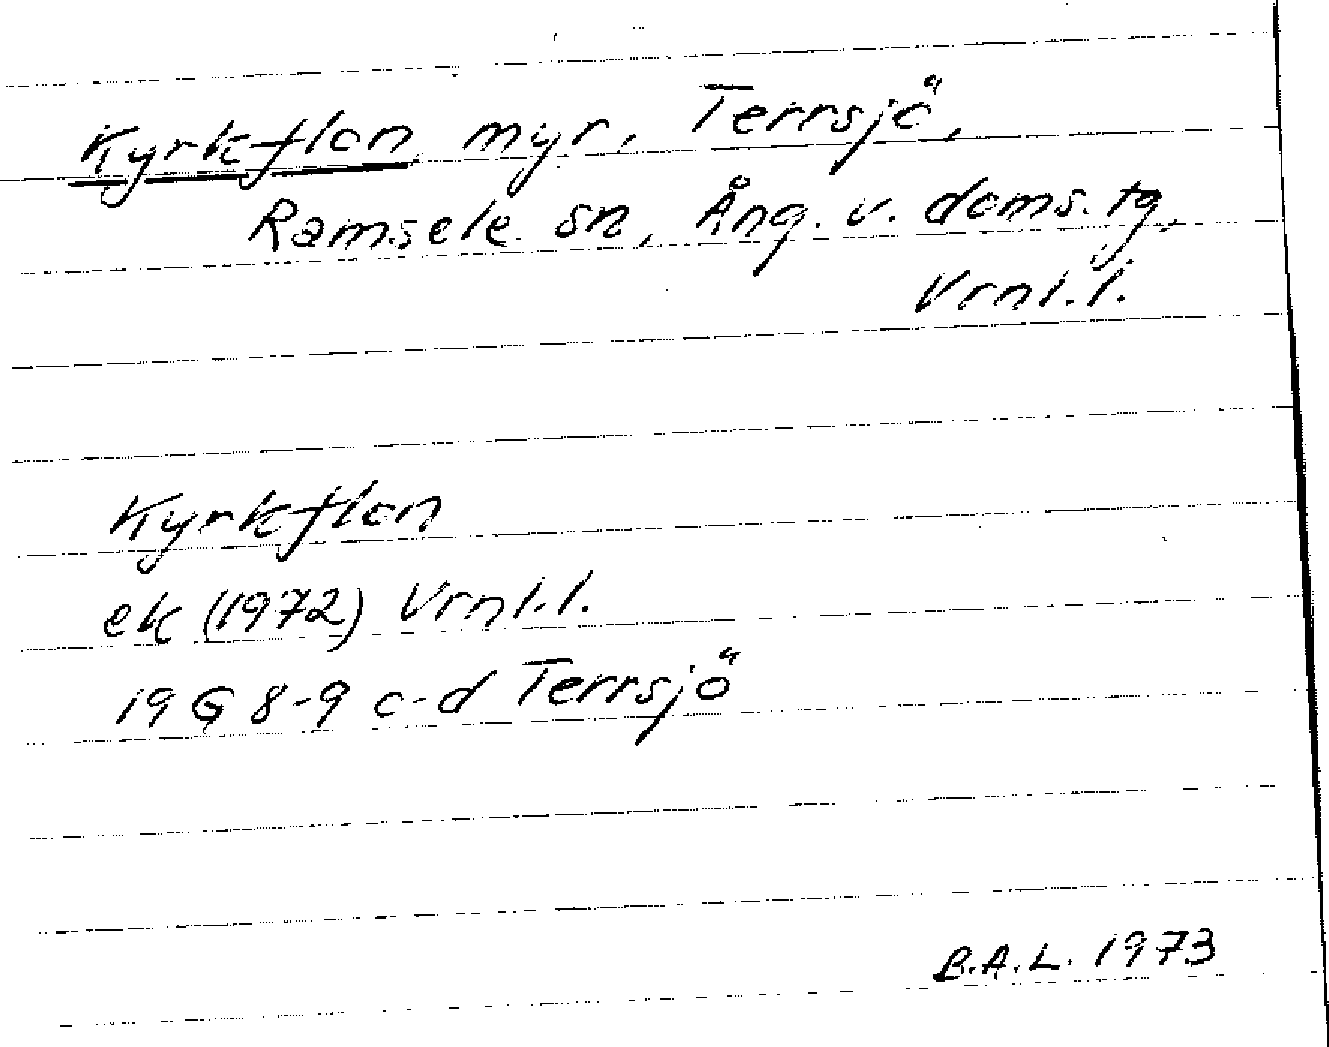 Kyrkflon, myr, Terrsjö,
Ramsele sn, Ång. v. doms. tg,
Vrnl.l.
Kyrkflon
ek (1972) Vrnl.l.
19 G 8-9 c-d Terrsjö
B.A.L. 1973